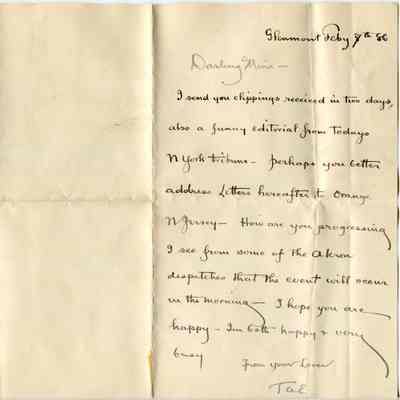 Glenmont Feby 8th 86
Darling Mina —
I send you clippings received in two days,
also a funny editorial from Todays
N York Tribune — perhaps you better
address Letters hereafter to Orange
N Jersey — How are you progressing
I see from some of the Akron
despatches that the event will occur
in the morning — I hope you are
happy — Im both happy & very
busy
From your Lover
TAE